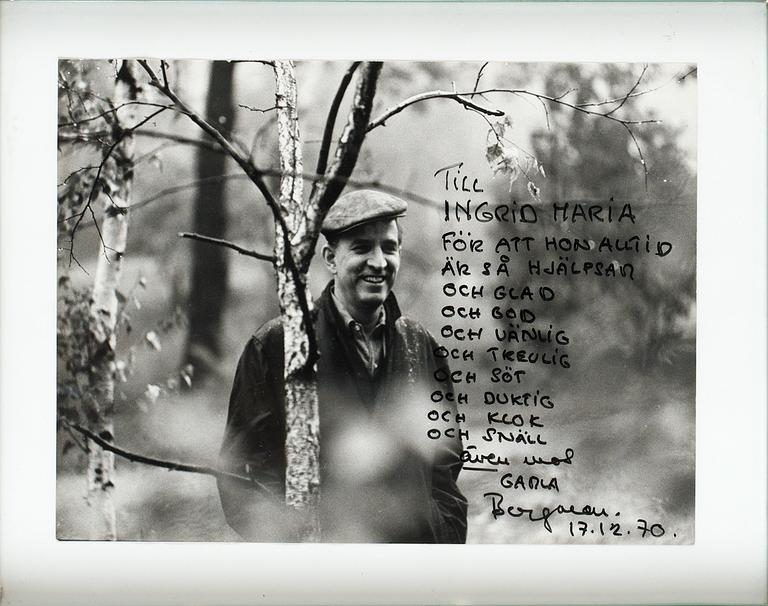 TILL
INGRID MARIA
FÖR ATT HON ALLTID
ÄR SÅ HJÄLPSAM
OCH GLAD
OCH GOD
OCH VÄNLIG
OCH TREVLIG
OCH SÖT
OCH DUKTIG
OCH KLOK
OCH SNÄLL
även mot
GAMLA
Bergman.
17.12.70.